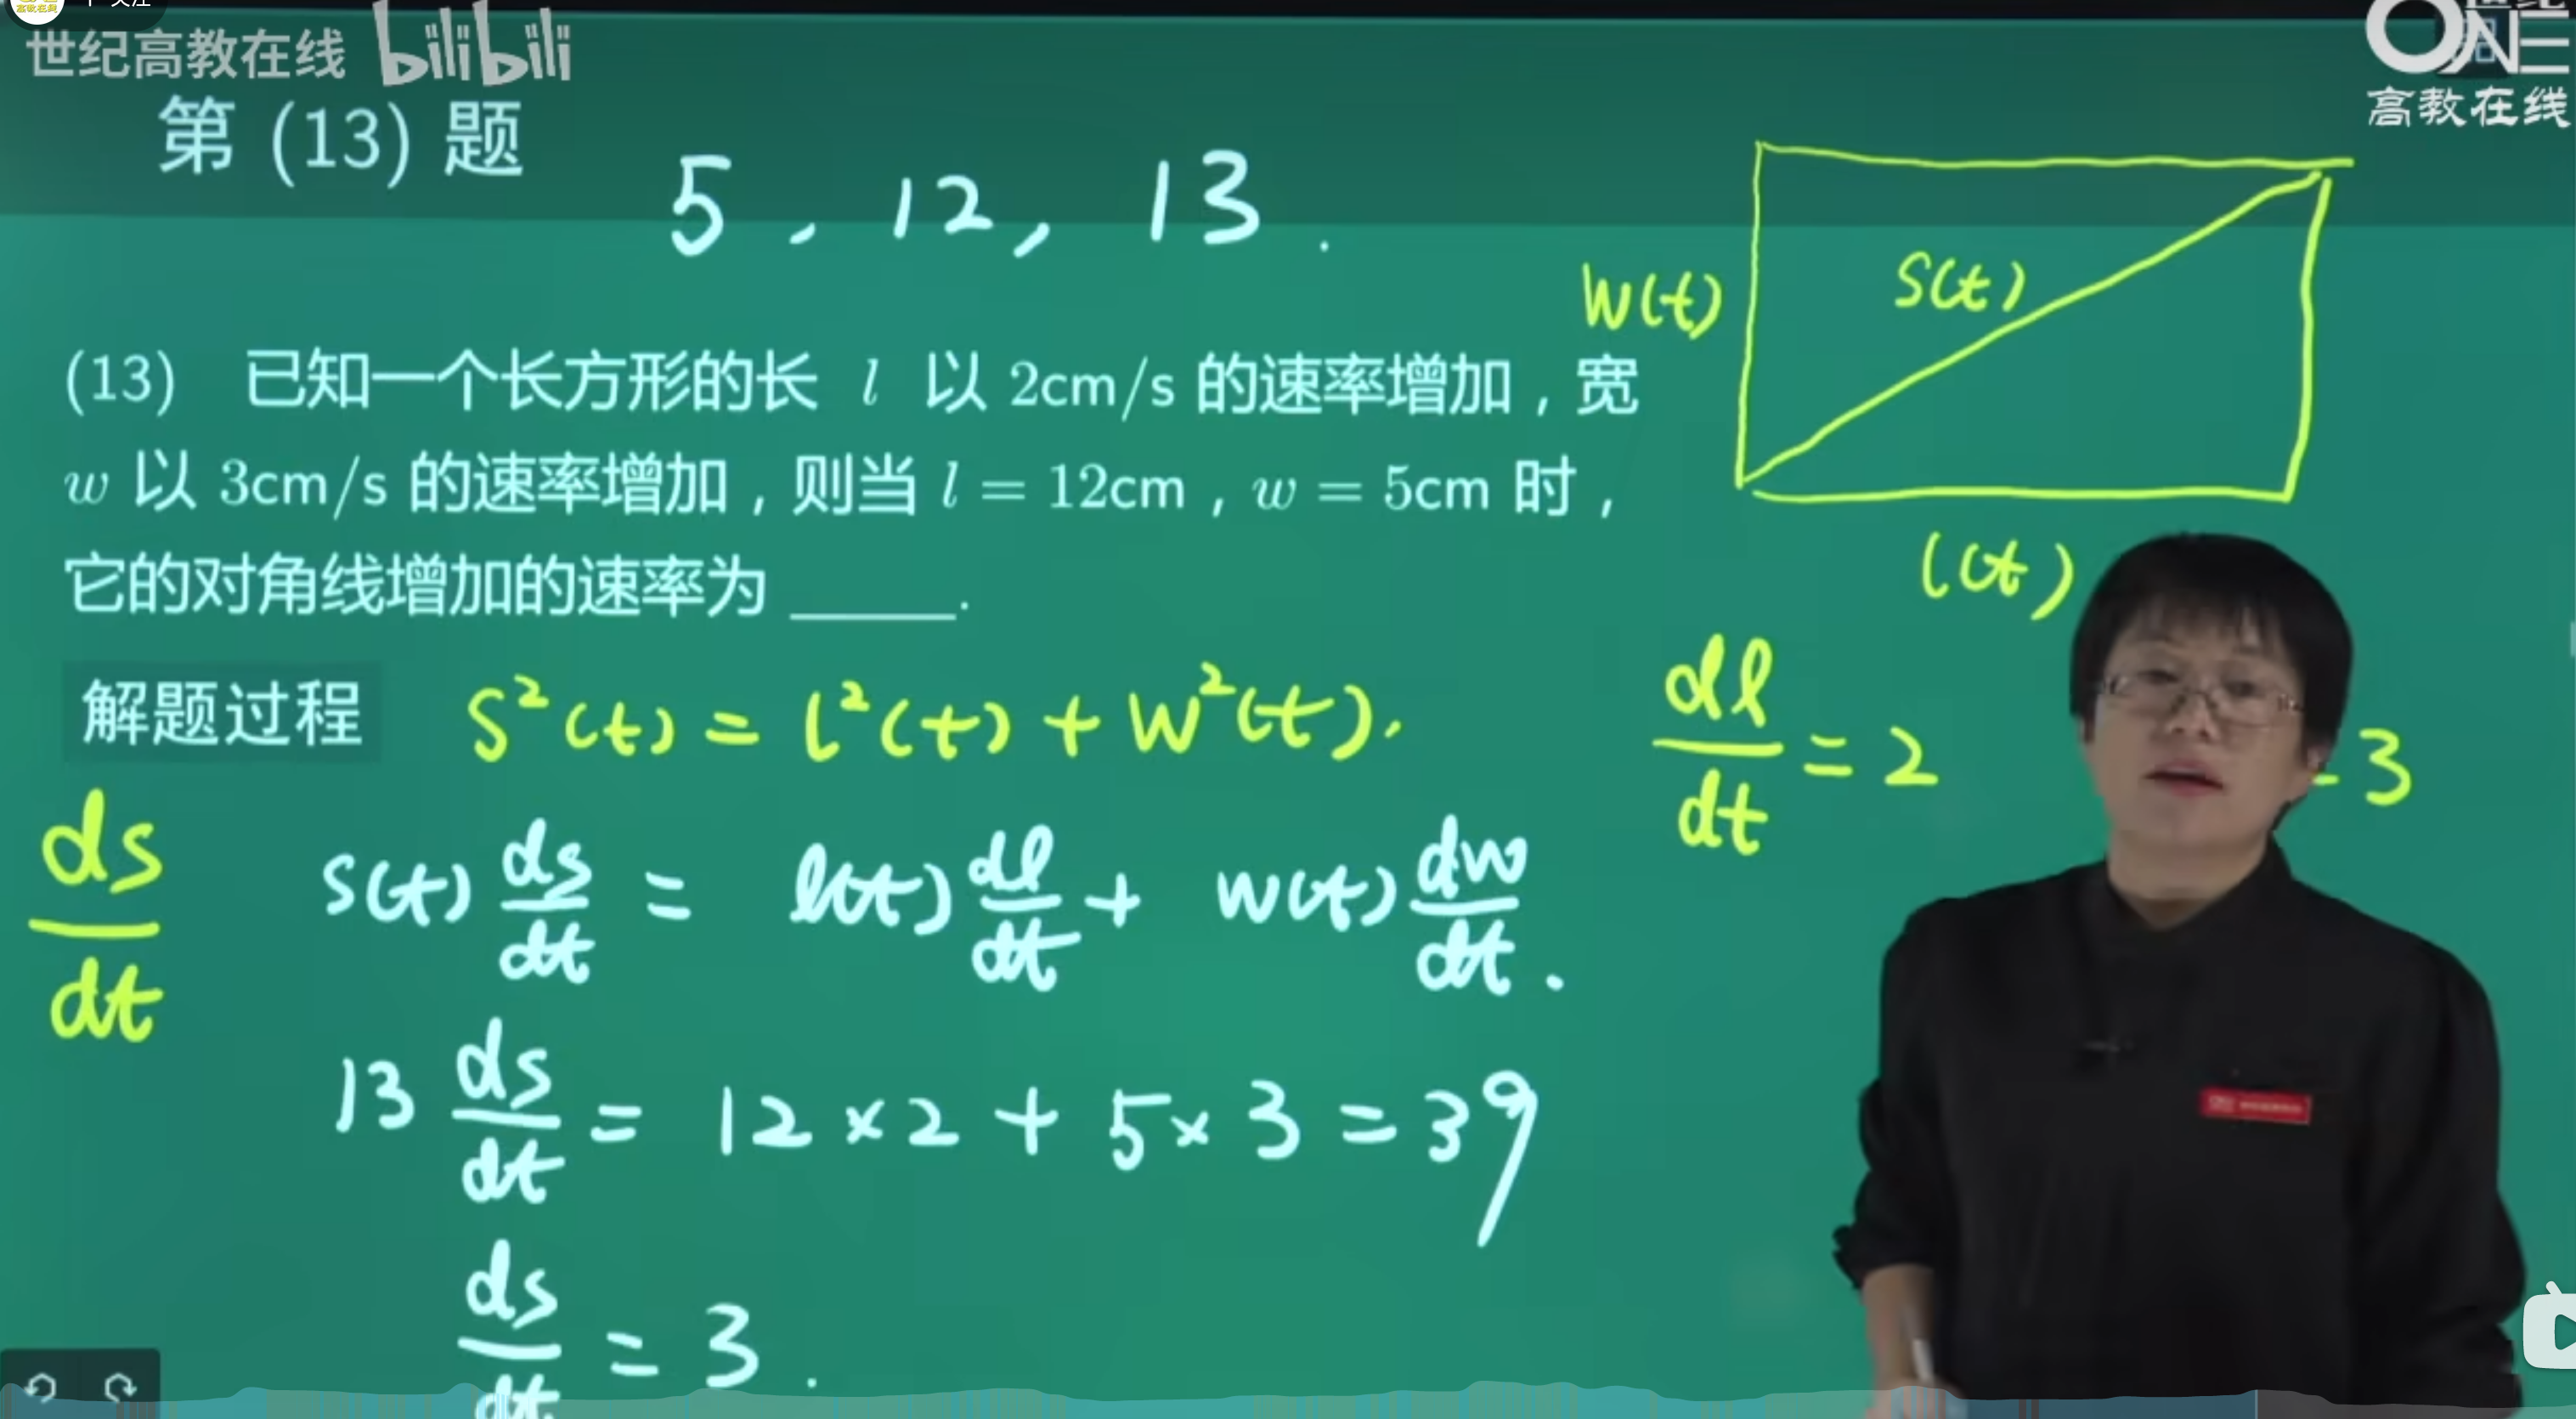 世纪高教在线 bilibili
高教在线
第 (13) 题
5, 12, 13.
W(t)
S(t)
l(t)
(13) 已知一个长方形的长 l 以 2cm/s 的速率增加，宽
w 以 3cm/s 的速率增加，则当 l = 12cm，w = 5cm 时，
它的对角线增加的速率为 ______.
解题过程
S²(t) = l²(t) + W²(t).
dl/dt = 2
3
ds/dt
S(t) ds/dt = l(t) dl/dt + W(t) dw/dt.
13 ds/dt = 12 × 2 + 5 × 3 = 39
ds/dt = 3.